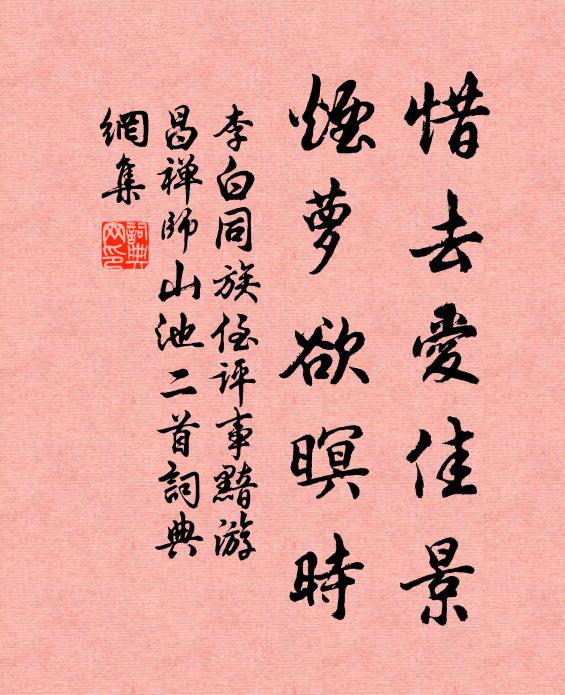 惜去愛佳景
煙萝欲暝時
李白同族侄評事黯游
昌禅師山池二首詞典
網集
詞典
网印